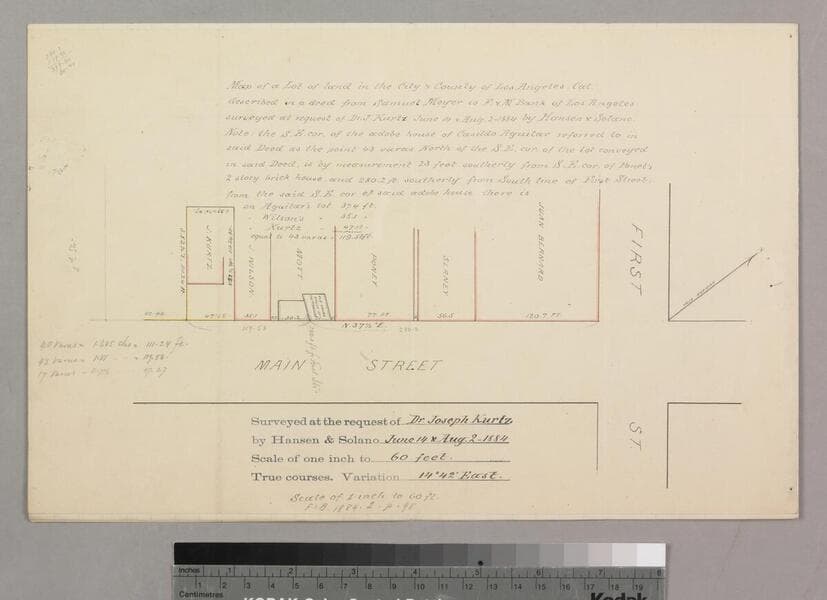 Map of a Lot of land in the City & County of Los Angeles, Cal.
described in a deed from Samuel Meyer to F. & M. Bank of Los Angeles
surveyed at request of Dr. J. Kurtz June 14 & Aug. 2-1884 by Hansen & Solano.
Note: the S.E. cor. of the adobe house of Casildo Aguilar referred to in
said Deed as the point 43 varas North of the S.E. cor. of the lot conveyed
in said Deed, is by measurement 23 feet southerly from S.E. cor. of Ponet's
2 story brick house, and 280.2 ft. southerly from South line of First Street;
from the said S.E. cor. of said adobe house there is
on Aguilar's lot 37.4 ft.
" Wilson's " 35.1 "
" Kurtz " 47.15 "
equal to 43 varas = 119.58 ft.
J. KURTZ
J. WILSON
MOTT
PONET
JUAN BERNARD
FIRST
ST.
47.15
35.1
77. Ft.
56.5
120.7 Ft.
119.58
N. 37¾° E.
MAIN STREET
43 varas =
17 varas
Surveyed at the request of Dr. Joseph Kurtz
by Hansen & Solano June 14 & Aug. 2-1884
Scale of one inch to 60 feet.
True courses. Variation 14°42' East.
Scale of 1 inch to 60 ft.
F.B. 1884. 2. p. 95
inches 1 2 3 4 5 6 7 8
Centimetres 1 2 3 4 5 6 7 8 9 10 11 12 13 14 15 16 17 18 19
Kodak